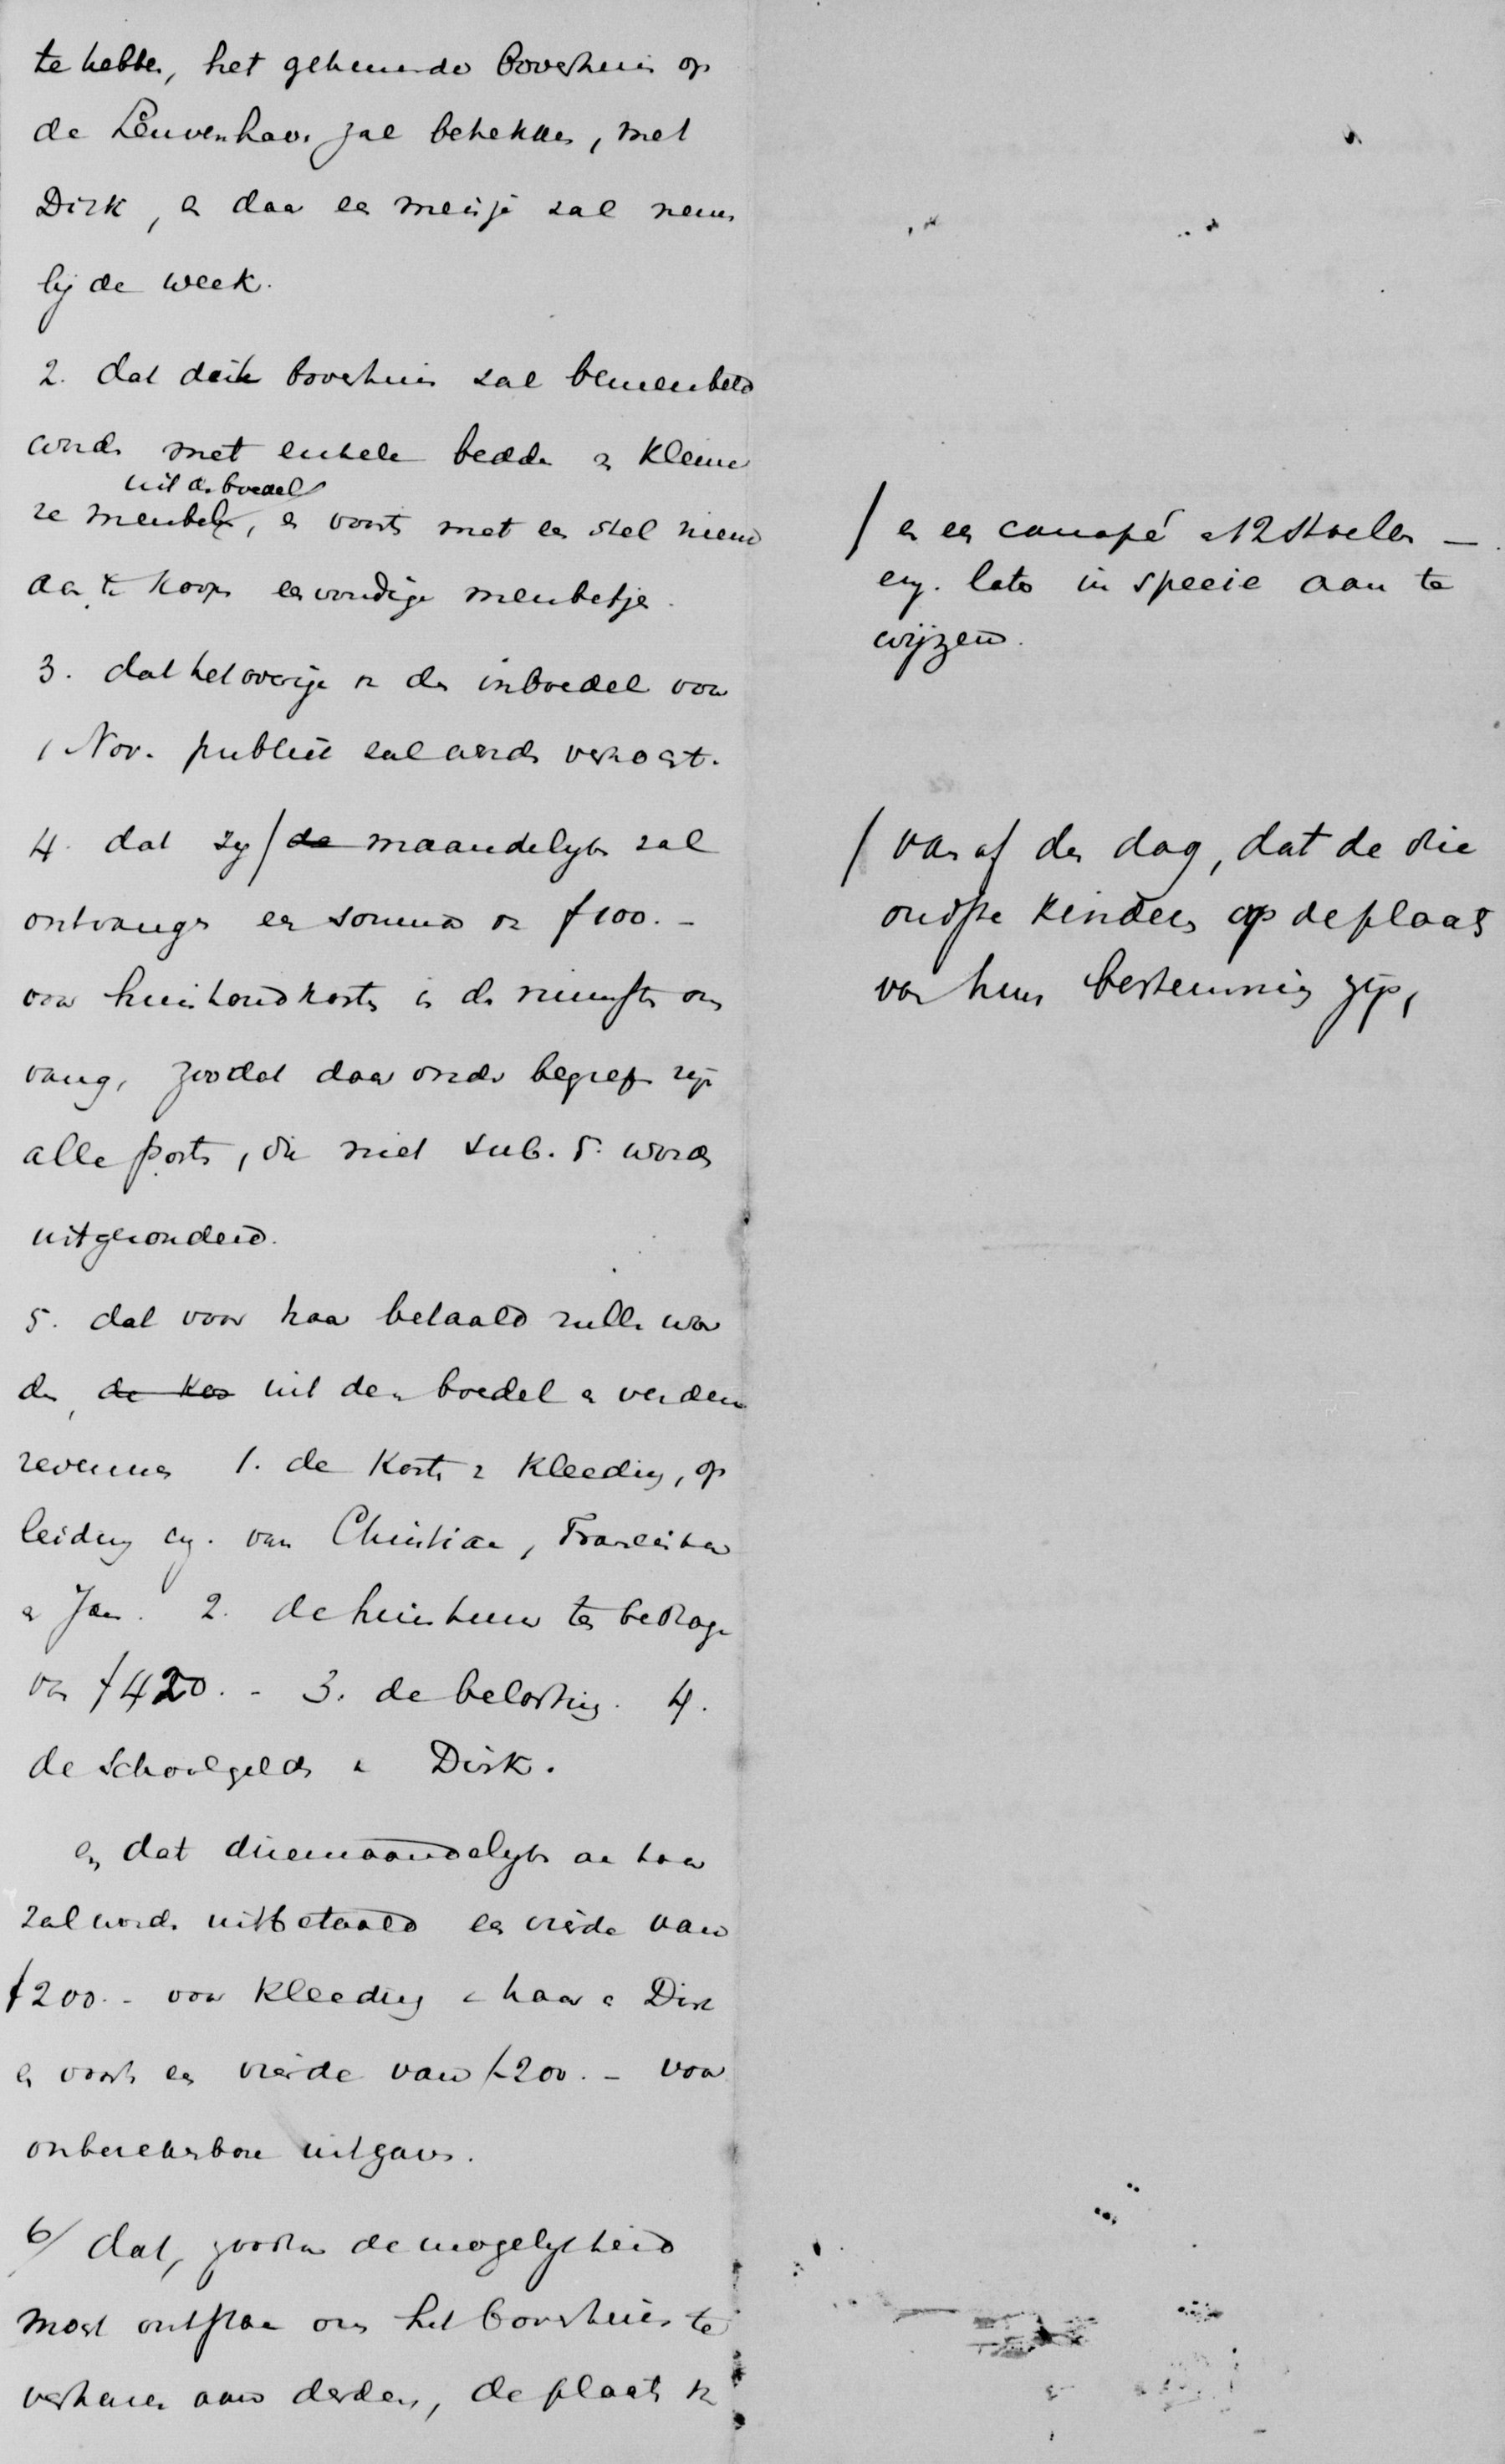 te hebben, het gehuurde bovenhuis op
de Leuvenhaven zal betrekken, met
Dirk, en daar een meisje zal nemen
bij de week.
2. dat dit bovenhuis zal bemeubeld
worden met enkele bedden en kleine
uit den boedel
re meubels, en voorts met een stel nieuw
aan te koopen eenvoudige meubeltjes.
3. dat het overige van den inboedel voor
1 Nov. publiek zal worden verkocht.
4. dat zij / de maandelijks zal
ontvangen een somma van f 100.-
voor huishoudkosten in den ruimsten om
vang, zoodat daar onder begrepen zijn
alle posten, die niet sub. 5. worden
uitgezonderd.
5. dat voor haar betaald zullen wor
den, de kos uit den boedel en verdere
revenues 1. de kosten van kleeding, op
leiding enz. van Christiaan, Francisca
en Jan. 2. de huishuur ten bedrage
van f 420.- 3. de belasting. 4.
de schoolgelden van Dirk.
en dat driemaandelijks aan haar
zal worden uitbetaald een vierde van
f 200.- voor kleeding van haar en Dirk
en voorts een vierde van f 200.- voor
onberekenbare uitgaven.
6/ dat, zoodra de mogelijkheid
mocht ontstaan om het bovenhuis te
verhuren aan derden, de plaats van
/ en een canapé en 12 stoelen —
enz. later in specie aan te
wijzen.
/ van af den dag, dat de drie
oudste kinderen op de plaats
van hun bestemming zijn,